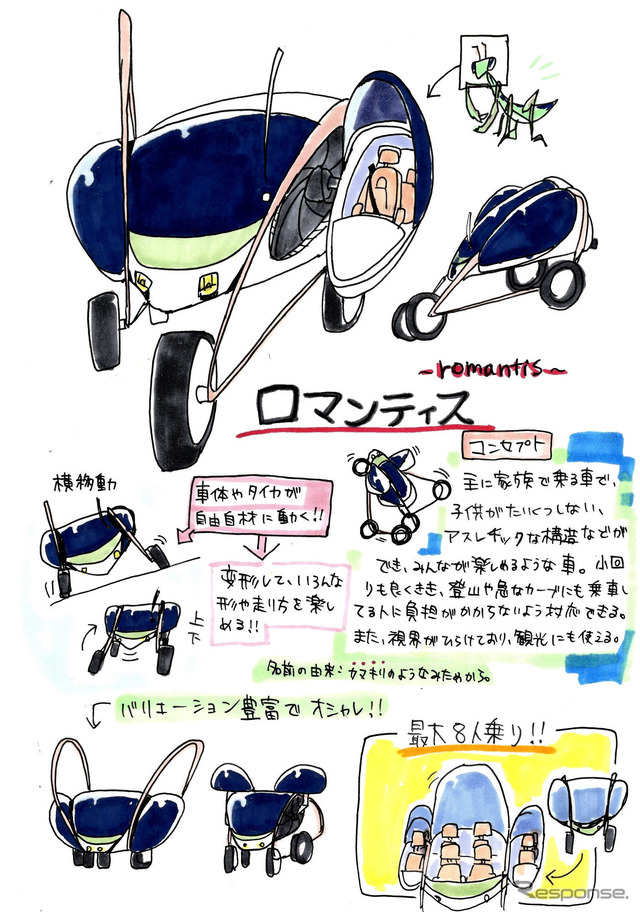 ~romantis~
ロマンティス
コンセプト
主に家族で乗る車で、
子供がたいくつしない、
アスレチックな構造などが
でき、みんなが楽しめるような車。小回
りも良くきき、登山や急なカーブにも乗車し
てる人に負担がかからないよう対応できる。
また、視界がひらけており、観光にも使える。
横移動
車体やタイヤが
自由自材に動く!!
変形して、いろんな
形や走り方を楽し
める!!
上
下
名前の由来:カマキリのようなみためから。
バリエーション豊富でオシャレ!!
最大8人乗り!!
Response.